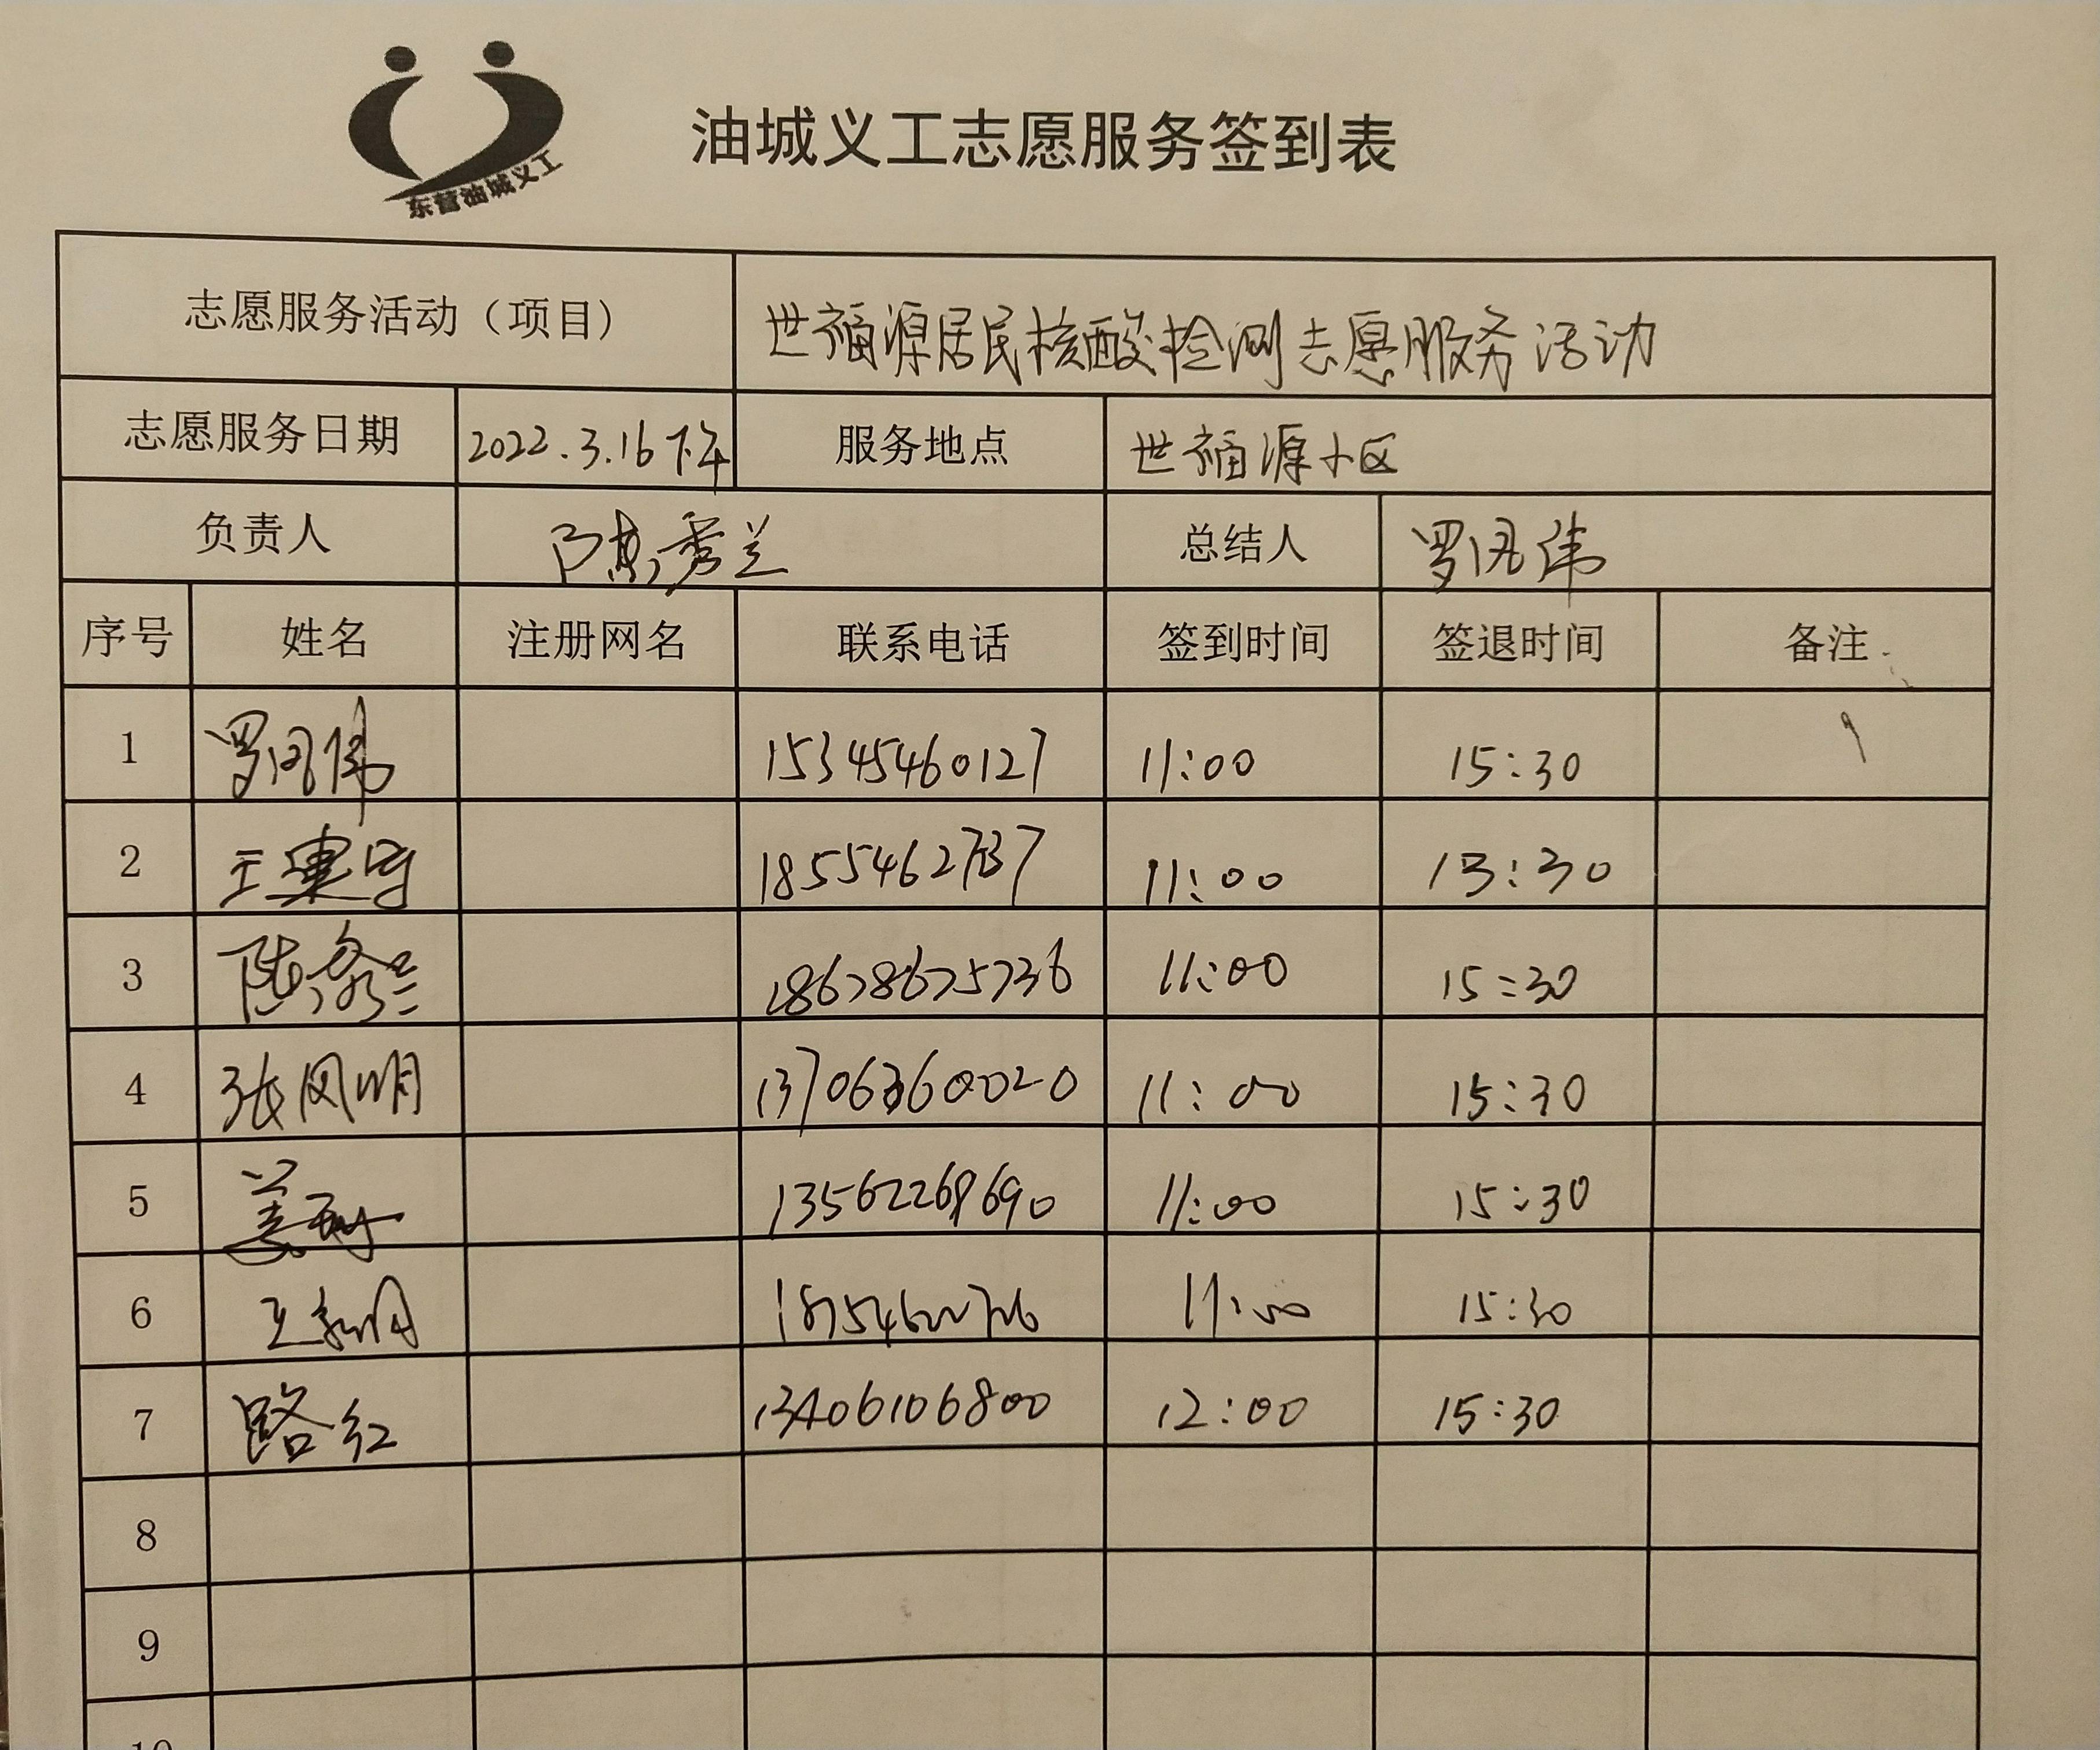 东营油城义工
油城义工志愿服务签到表
志愿服务活动（项目） 世福源居民核酸检测志愿服务活动
志愿服务日期 2022.3.16下午 服务地点 世福源小区
负责人 陈秀兰 总结人 罗凤伟
序号 姓名 注册网名 联系电话 签到时间 签退时间 备注
1 罗凤伟 15345460127 11:00 15:30
2 11:00 15:30
3 陈秀兰 18678675736 11:00 15:30
4 张凤明 13706360020 11:00 15:30
5 姜 13562268690 11:00 15:30
6 王 11:00 15:30
7 路红 13406106800 12:00 15:30
8
9
10